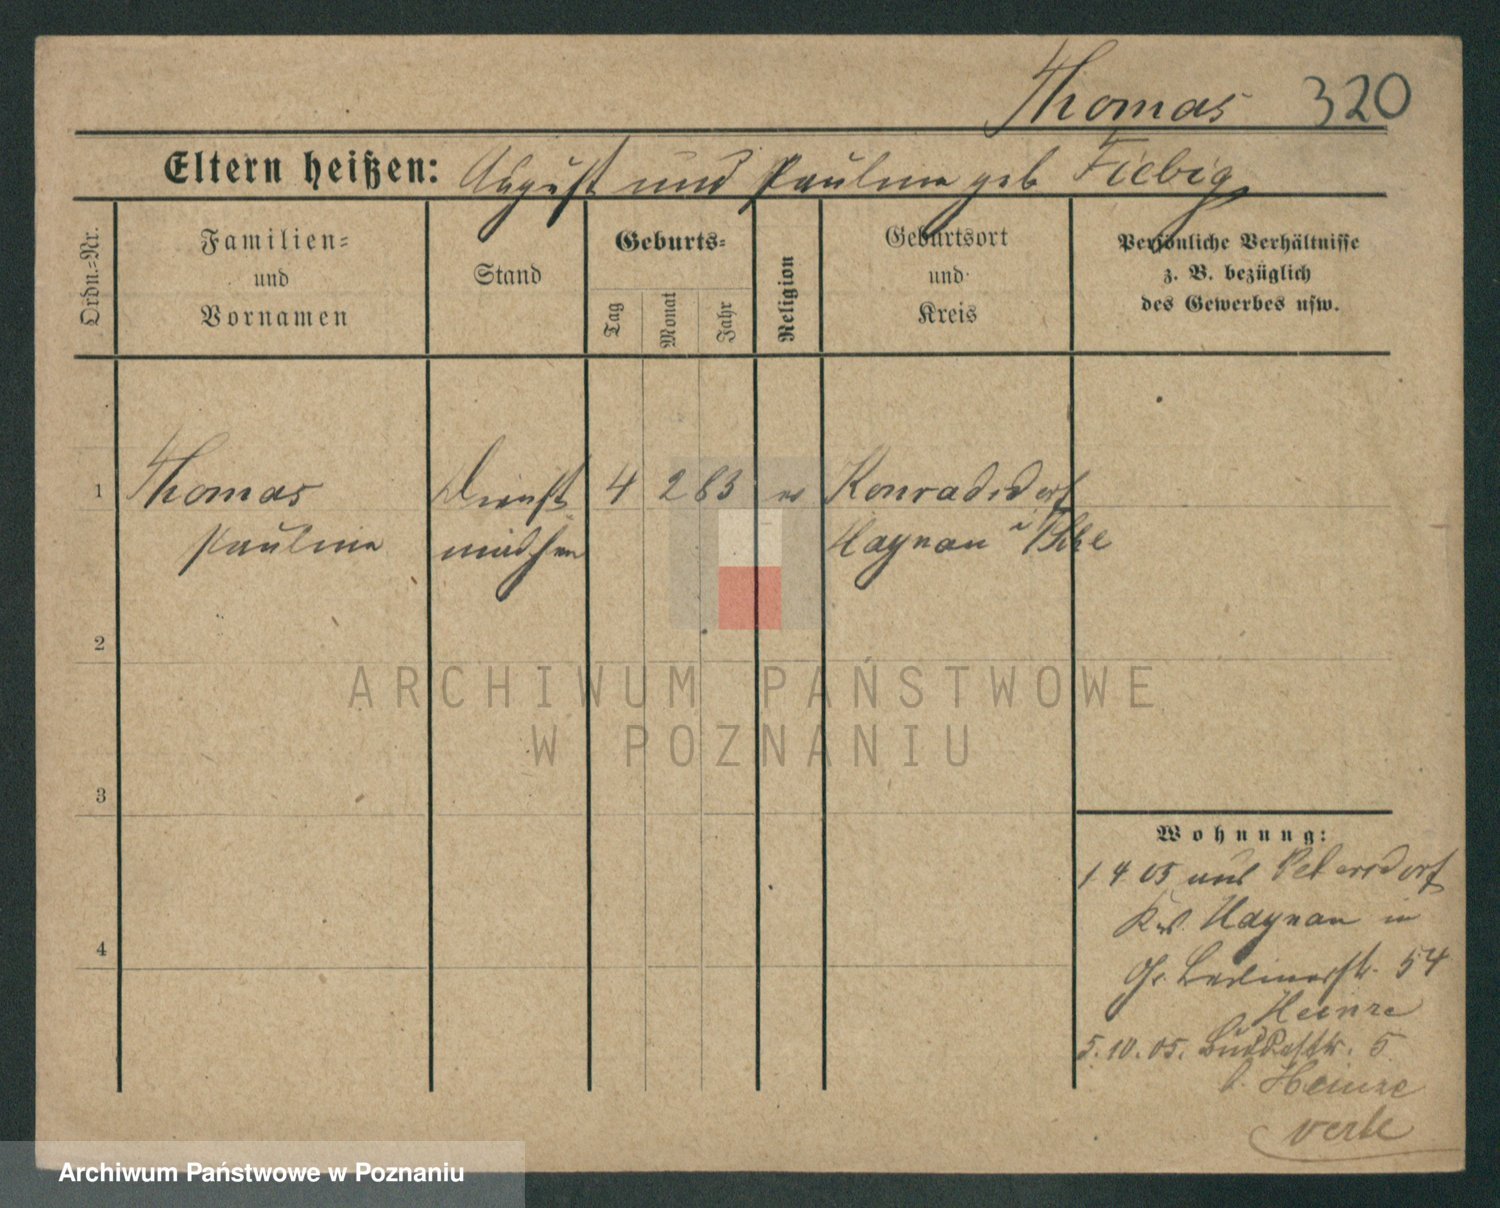 Thomas 320
Eltern heißen: August und Pauline geb Fiebig
Ordn.=Nr.
Familien=
und
Vornamen
Stand
Geburts=
Tag
Monat
Jahr
Religion
Geburtsort
und
Kreis
Persönliche Verhältnisse
z. B. bezüglich
des Gewerbes usw.
1 Thomas Dienst 4 2 83 ev Konradsdorf
Pauline mädchen Haynau
2
ARCHIWUM PAŃSTWOWE
W POZNANIU
3
Wohnung:
1.4.05 aus Petersdorf
Haynau in
Gr. Berlinerstr. 54
Heinze
4
5.10.05. 5
b. Heinze
Archiwum Państwowe w Poznaniu